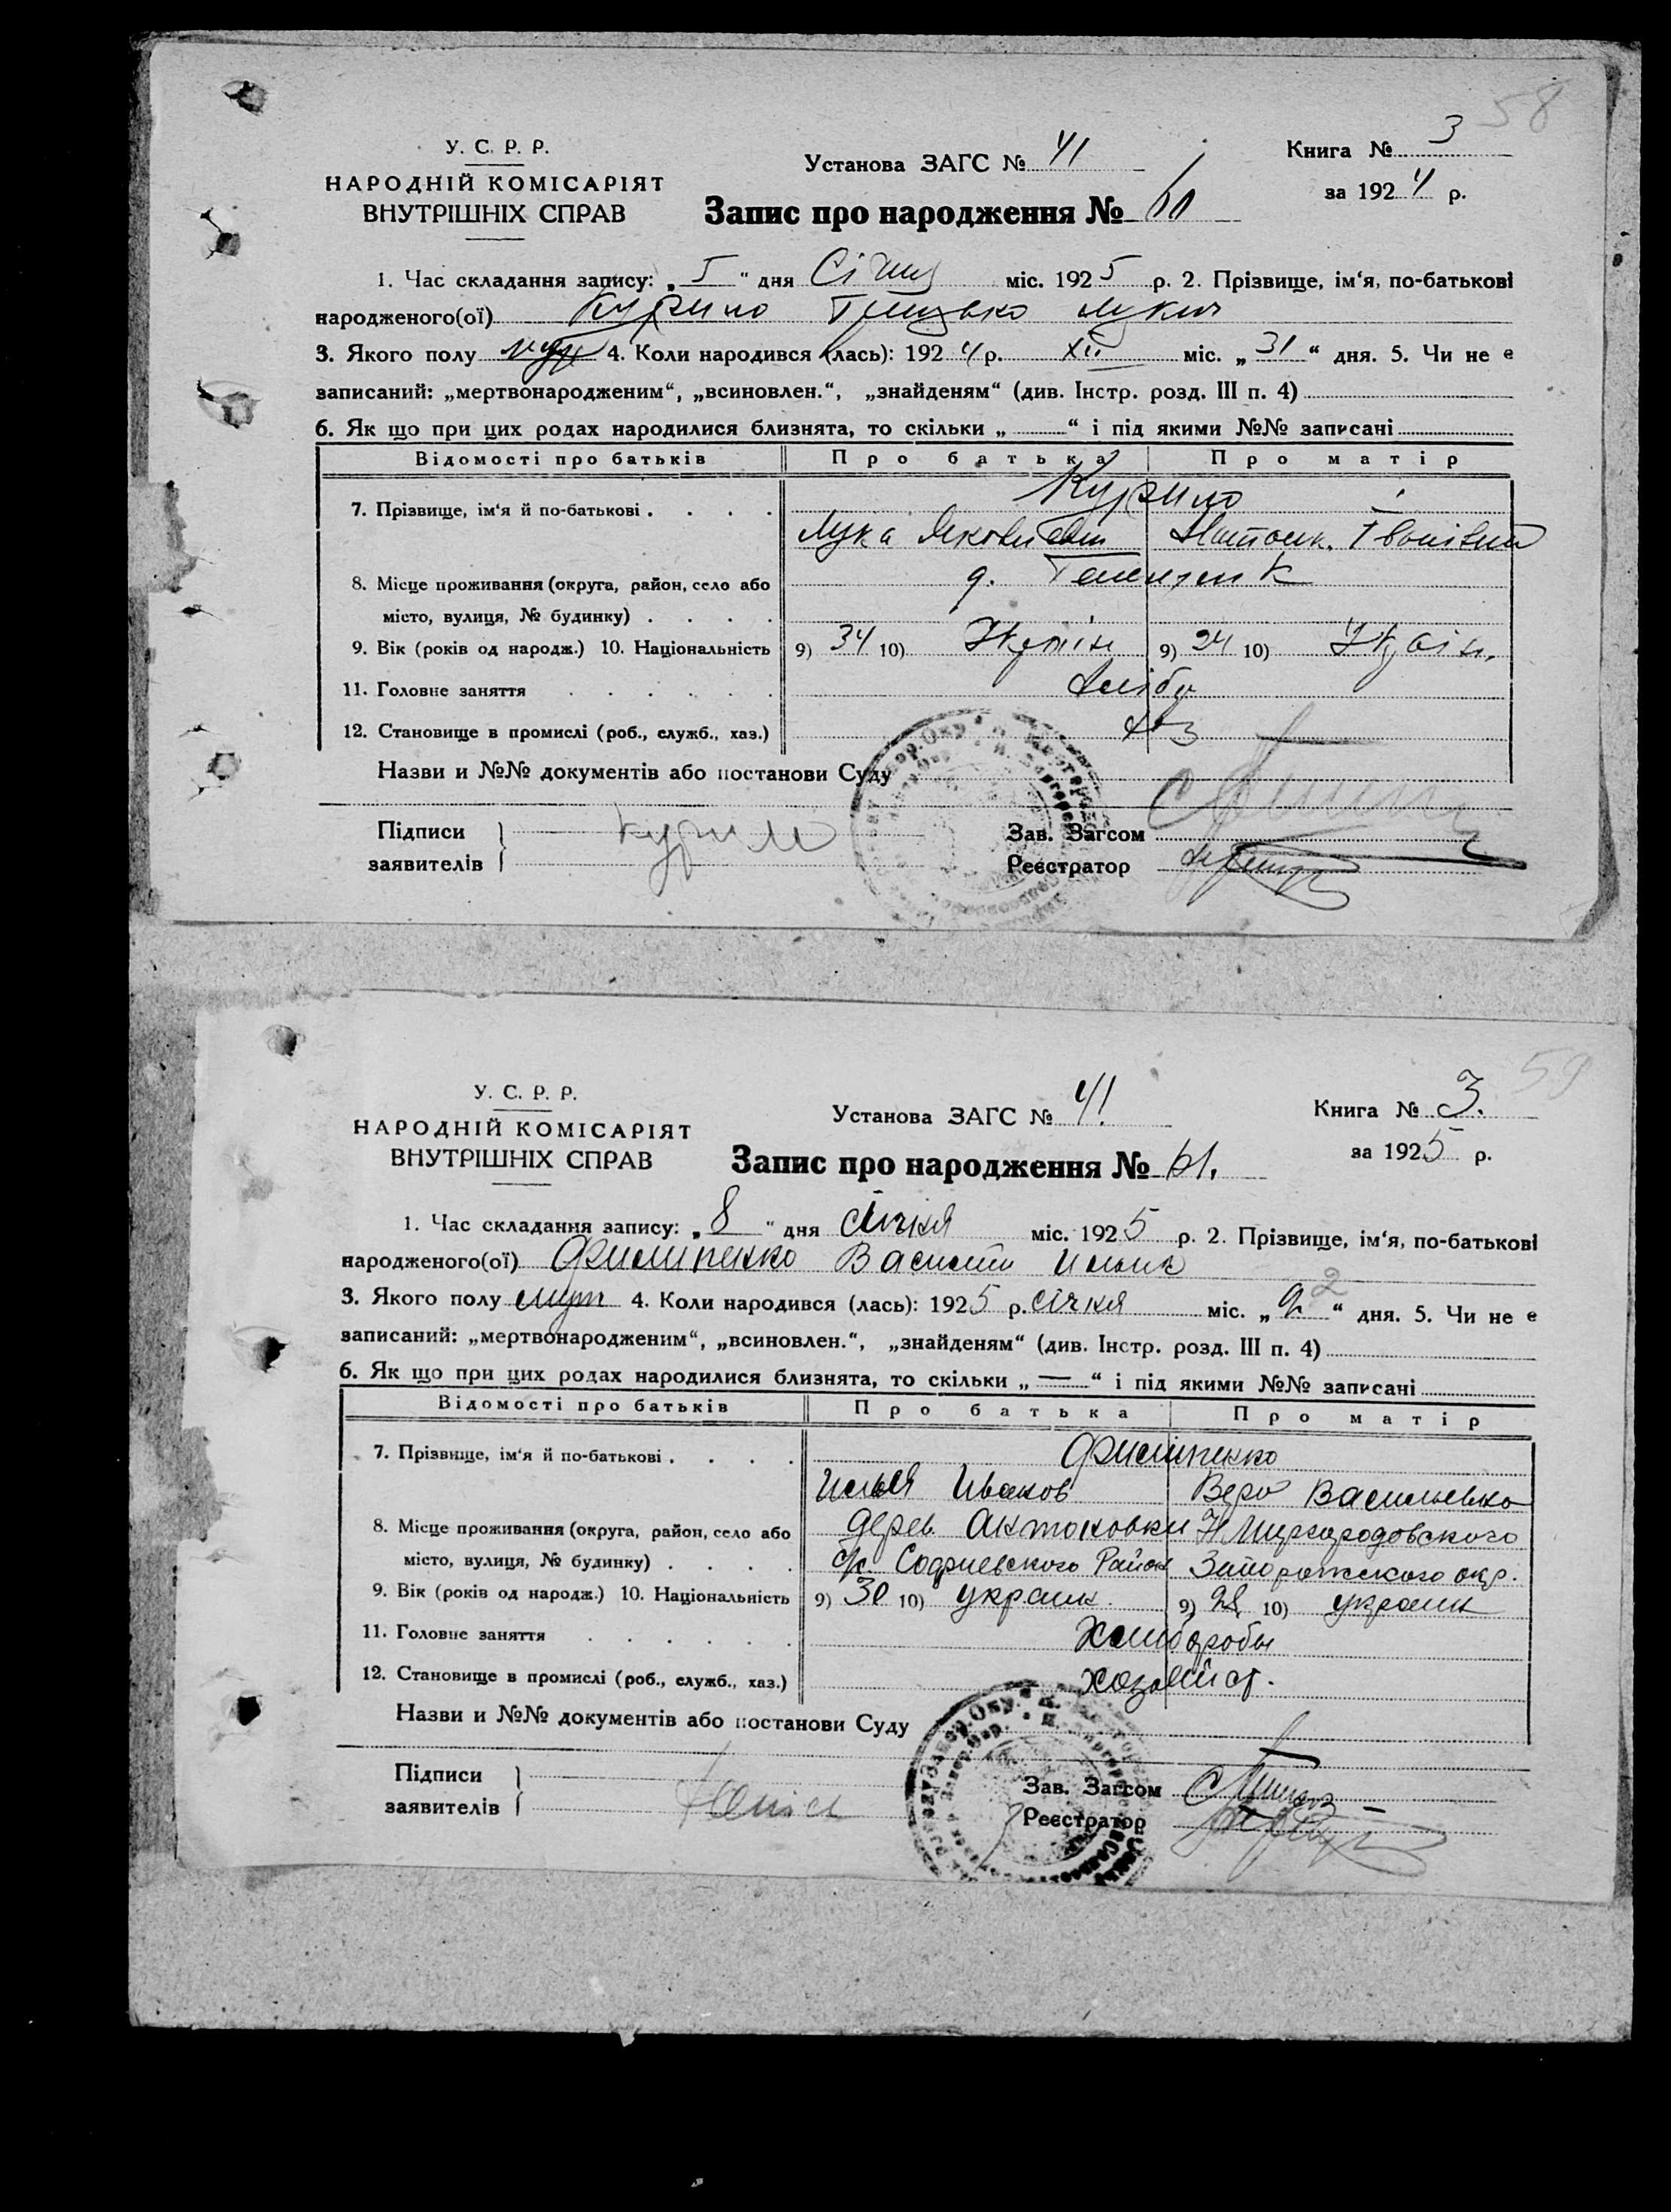 58
У. С. Р. Р.
НАРОДНІЙ КОМІСАРІЯТ
ВНУТРІШНІХ СПРАВ
Установа ЗАГС № 41
Книга № 3
за 1924 р.
Запис про народження №
1. Час складання запису: „5“ дня Січня міс. 1925 р. 2. Прізвище, ім'я, по-батькові
народженого(ої) Курило Грицько Лукич
3. Якого полу муж 4. Коли народився (лась): 1924 р. XII міс. „31“ дня. 5. Чи не е
записаний: „мертвонародженим“, „всиновлен.“, „знайденям“ (див. Інстр. розд. III п. 4)
6. Як що при цих родах народилися близнята, то скільки „ “ і під якими №№ записані
Відомості про батьків Про батька Про матір
7. Прізвище, ім'я й по-батькові . . . . Курило
Лука Якович Іванівна
8. Місце проживання (округа, район, село або
місто, вулиця, № будинку) . . . .
9. Вік (років од народж.) 10. Національність 9) 34 10) Україн 9) 24 10) Україн.
11. Головне заняття . . . . . .
12. Становище в промислі (роб., служб., хаз.)
Назви и №№ документів або постанови Суду
Підписи
заявителів
Курило
Зав. Загсом
Реєстратор
59
У. С. Р. Р.
НАРОДНІЙ КОМІСАРІЯТ
ВНУТРІШНІХ СПРАВ
Установа ЗАГС № 41.
Книга № 3.
за 1925 р.
Запис про народження № 61.
1. Час складання запису: „8“ дня січня міс. 1925 р. 2. Прізвище, ім'я, по-батькові
народженого(ої) Филипенко Василий
3. Якого полу муж 4. Коли народився (лась): 1925 р. січня міс. „2“ дня. 5. Чи не е
записаний: „мертвонародженим“, „всиновлен.“, „знайденям“ (див. Інстр. розд. III п. 4)
6. Як що при цих родах народилися близнята, то скільки „—“ і під якими №№ записані
Відомості про батьків Про батька Про матір
7. Прізвище, ім'я й по-батькові . . . . Филипенко
Илья Иванов Вера Васильевна
8. Місце проживання (округа, район, село або дерев. Антоновки Н Миргородовского
місто, вулиця, № будинку) . . . . Софиевского Район Запорожского окр.
9. Вік (років од народж.) 10. Національність 9) 30 10) украин. 9) 28 10) украин
11. Головне заняття . . . . . . Хлибороби
12. Становище в промислі (роб., служб., хаз.)
Назви и №№ документів або постанови Суду
Підписи
заявителів
Зав. Загсом
Реєстратор